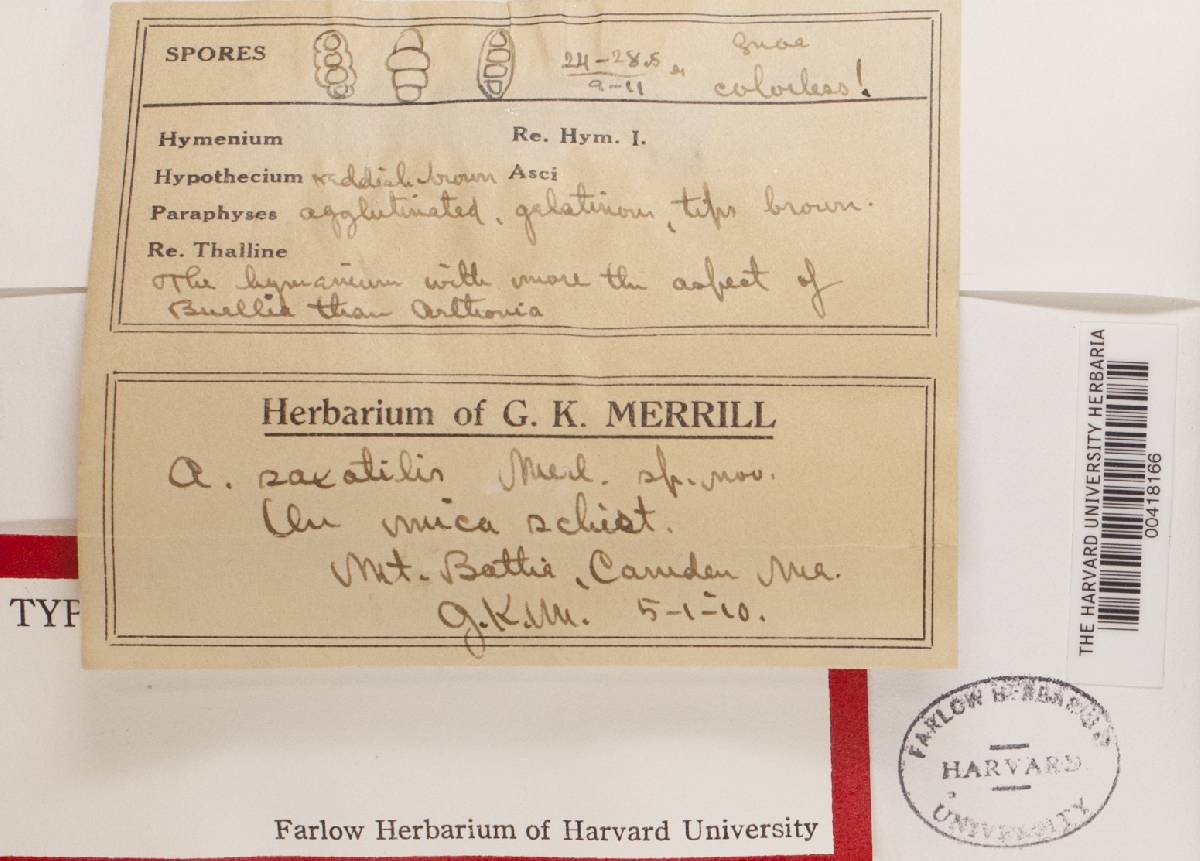 SPORES 24-28.5 / 9-11 µ
colorless!
Hymenium Re. Hym. I.
Hypothecium reddish-brown Asci
Paraphyses agglutinated, gelatinous, tips brown.
Re. Thalline
The hymenium with more the aspect of
Buellia than Arthonia
Herbarium of G. K. MERRILL
A. saxatilis Merl. sp. nov.
On mica schist.
Mt. Battie, Camden Me.
G.K.M. 5-1-10.
THE HARVARD UNIVERSITY HERBARIA
00418166
TYP
FARLOW HERBARIUM
HARVARD
UNIVERSITY
Farlow Herbarium of Harvard University